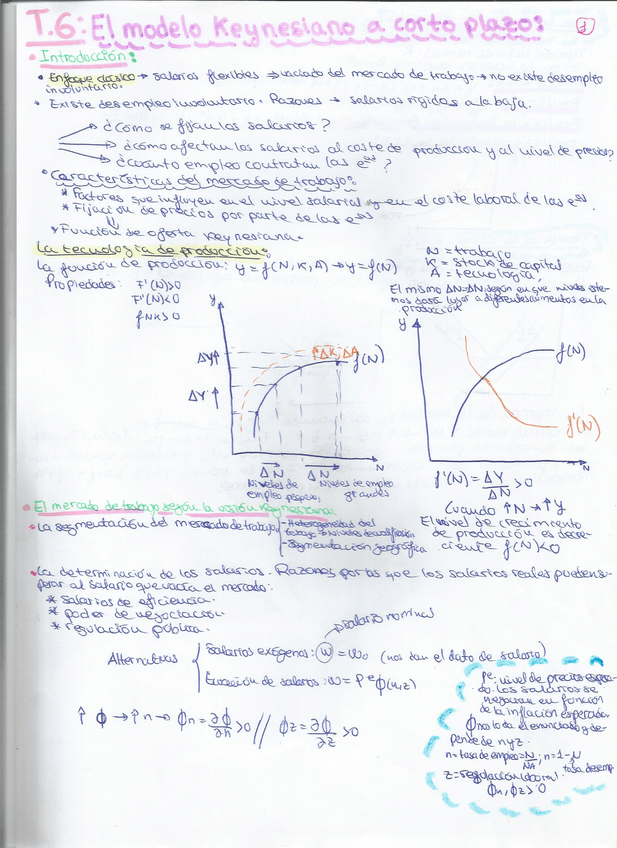 T.6: El modelo Keynesiano a corto plazo:
1
Introducción:
• Enfoque clásico → salarios flexibles → vaciado del mercado de trabajo → no existe desempleo
involuntario.
• Existe desempleo involuntario. Razones → salarios rígidos a la baja.
¿Cómo se fijan los salarios?
¿Cómo afectan los salarios al coste de producción y al nivel de precios?
¿Cuánto empleo contratan las esas?
• Características del mercado de trabajo:
* Factores que influyen en el nivel salarial y en el coste laboral de las esas
* Fijación de precios por parte de las esas
* Función de oferta Keynesiana.
La tecnología de producción:
La función de producción: y = f(N, K, A) → y = f(N)
Propiedades: F'(N)>0
F'(N)<0
fNK>0
N = trabajo
K = stock de capital
A = tecnología,
El mismo ΔN=ΔN, según en que niveles este-
mos dará lugar a diferentes aumentos en la
producción.
y
ΔY↑
ΔY ↑
↑ΔK, ΔA
f(N)
N
ΔN
ΔN
Niveles de
empleo pequeños,
Niveles de empleo
grandes
y
f(N)
f'(N)
N
f'(N) = ΔY/ΔN > 0
Cuando ↑N → ↑Y
El nivel de crecimiento
de producción es decre-
ciente f(N)<0
• El mercado de trabajo según la visión Keynesiana:
• La segmentación del mercado de trabajo
- Heterogeneidad del
trabajo → Niveles de cualificación
- Segmentación geográfica
• La determinación de los salarios. Razones por las que los salarios reales pueden su-
perar al salario que vacía el mercado:
* Salarios de eficiencia.
* poder de negociación.
* regulación pública.
salario nominal
Alternativas
Salarios exógenos: w = w₀ (nos dan el dato de salario)
Ecuación de salarios: w = Pᵉ ϕ(n,z)
↑ ϕ → ↑ n → ϕn = ∂ϕ/∂n > 0 // ϕz = ∂ϕ/∂z > 0
Pe: nivel de precios espera-
do. Los salarios se
negocian en función
de la inflación esperada
ϕ nos lo da el enunciado y de-
pende de n y z.
n = tasa de empleo = N/NA; n = 1-N
tasa desemp
z = regulación laboral.
ϕn, ϕz > 0